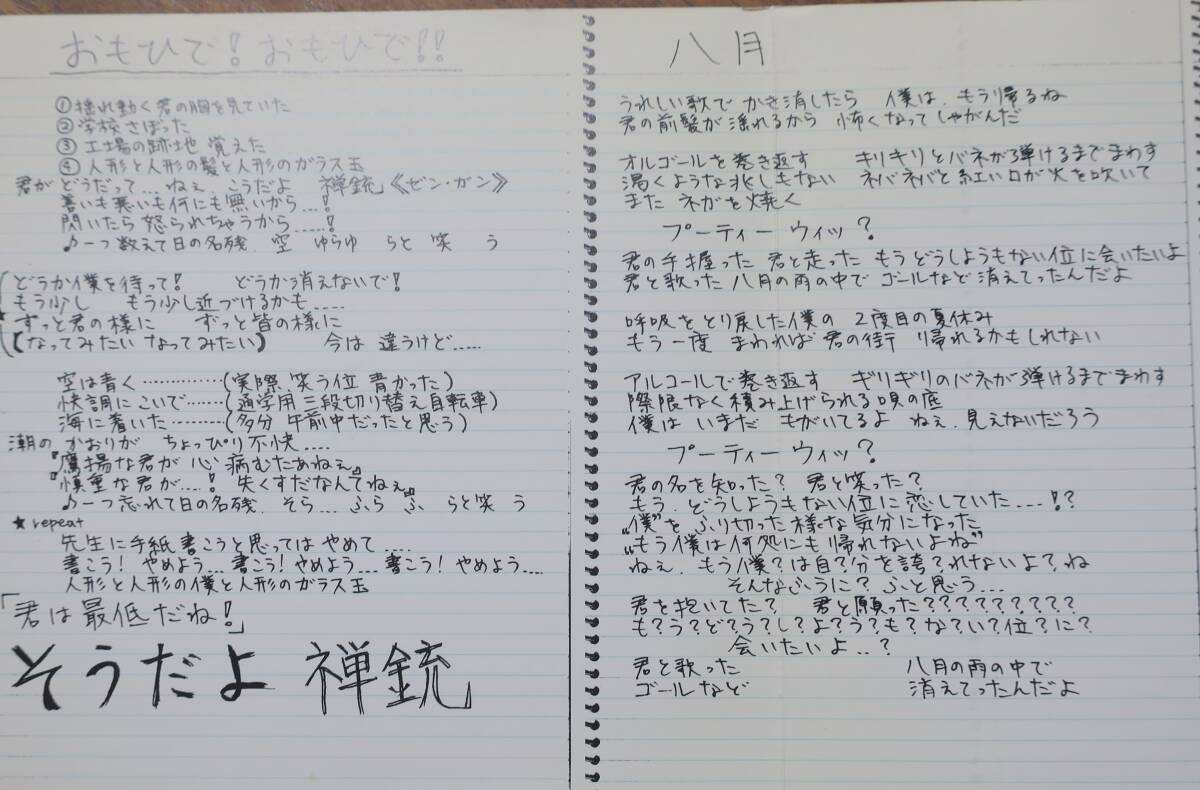 おもひで！おもひで!!
①揺れ動く君の胸を見ていた
②学校さぼった
③工場の跡地 覚えた
④人形と人形の髪と人形のガラス玉
君が どうだって… ねぇ. こうだよ 禅銃《ゼン・ガン》
善いも悪いも何にも無いから…!
聞いたら 怒られちゃうから……!
♪一つ数えて日の名残. 空 ゆらゆ らと 笑 う
(どうか僕を待って! どうか消えないで!
もう少し もう少し近づけるかも……
★ずっと君の様に ずっと皆の様に
(【なってみたい なってみたい】 今は 違うけど……
空は青く……………(実際 笑う位 青かった)
快調にこいで……(通学用 三段切り替え自転車)
海に着いた………(多分 午前中だったと思う)
潮の かおりが ちょっぴり不快…‥
『鷹揚な君が 心 病むたあねぇ』
『慎重な君が…! 失くすだなんてねぇ』
♪一つ忘れて日の名残. そら… ふら ふ らと笑 う
★ repeat
先生に手紙 書こうと思っては やめて…‥
書こう! やめよう… 書こう! やめよう… 書こう! やめよう…‥
人形と人形の僕と人形のガラス玉
「君は最低だね!」
そうだよ 禅銃」
八月
うれしい歌で かき消したら 僕は. もう帰るね
君の前髪が濡れるから 怖くなってしゃがんだ
オルゴールを巻き返す キリキリとバネが弾けるまでまわす
渇くような兆しもない ネバネバと紅い口が火を吹いて
また ネガを焼く
プーティー ウィッ?
君の手握った 君と走った もうどうしようもない位に会いたいよ
君と歌った 八月の雨の中で ゴールなど 消えてったんだよ
呼吸を とり戻した僕の 2度目の夏休み
もう一度 まわれば 君の街 帰れるかもしれない
アルコールで巻き返す ギリギリのバネが弾けるまでまわす
際限なく積み上げられる唄の底
僕は いまだ もがいてるよ ねぇ. 見えないだろう
プーティー ウィッ?
君の名を知った? 君と笑った?
もう. どうしようもない位に恋していた…‥!?
“僕”を ふり切った様な気分になった
“もう僕は何処にも帰れないよね”
ねぇ. もう僕?は自?分を誇?れないよ?ね
そんなふうに? ふと思う…
君を抱いてた? 君と願った?????????
も?う?ど?う?し?よ?う?も?な?い?位?に?
会いたいよ‥?
君と歌った 八月の雨の中で
ゴールなど 消えてったんだよ